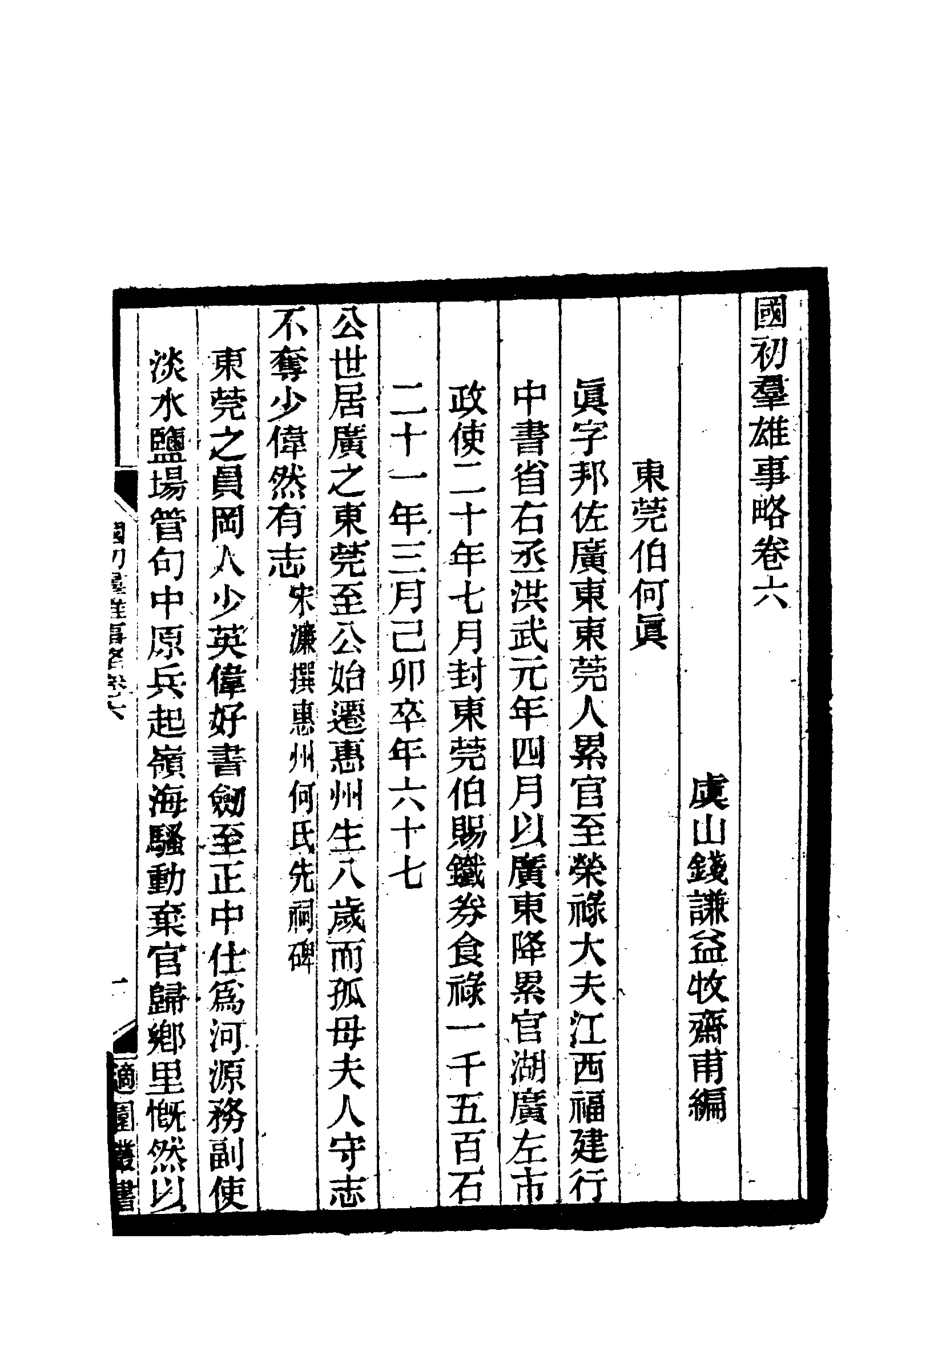 國初羣雄事略卷六
虞山錢謙益牧齋甫編
東莞伯何眞
眞字邦佐廣東東莞人累官至榮祿大夫江西福建行
中書省右丞洪武元年四月以廣東降累官湖廣左布
政使二十年七月封東莞伯賜鐵券食祿一千五百石
二十一年三月己卯卒年六十七
公世居廣之東莞至公始遷惠州生八歲而孤母夫人守志
不奪少偉然有志宋濂撰惠州何氏先祠碑
東莞之員岡人少英偉好書劒至正中仕爲河源務副使
淡水鹽場管句中原兵起嶺海騷動棄官歸鄉里慨然以
國初羣雄事略卷六
一
適園叢書